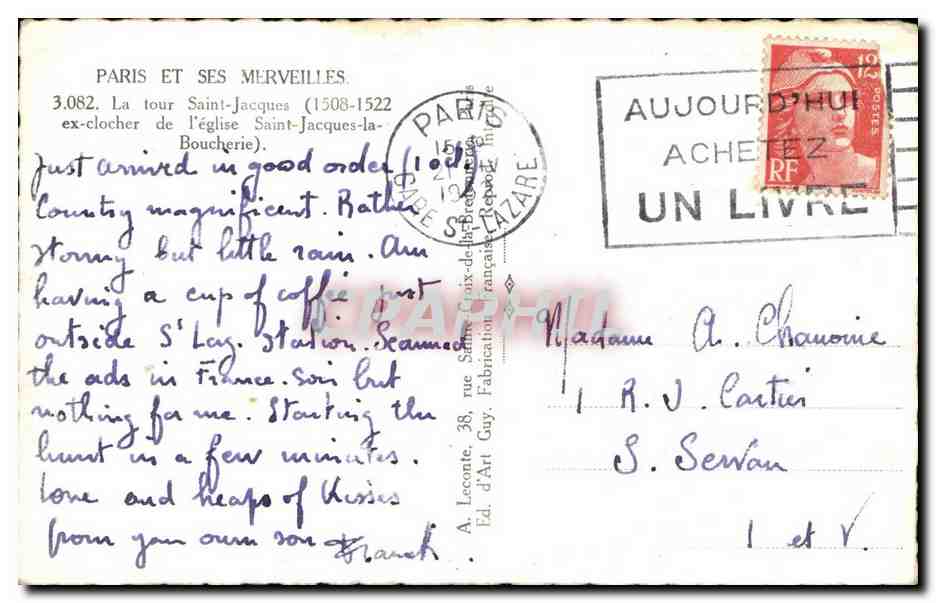 PARIS ET SES MERVEILLES.
3.082. La tour Saint-Jacques (1508-1522
ex-clocher de l'église Saint-Jacques-la-
Boucherie).
Just arrived in good order
Country magnificent. Rather
stormy but little rain. Am
having a cup of coffee just
outside St Laz. Station. Scanned
the ads in France-Soir but
nothing for me. Starting the
hunt in a few minutes.
Love and heaps of Kisses
from your own son Franck.
A. Leconte, 38, rue Sainte-Croix-de-la-Bretonnerie, Paris
Ed. d'Art Guy. Fabrication Française. Reprod. Interdite
CPARHIL
PARIS
GARE St-LAZARE
AUJOURD'HUI
ACHETEZ
UN LIVRE
12
POSTES
RF
Madame A. Chanoine
1 R. J. Cartier
S. Servan
I et V.